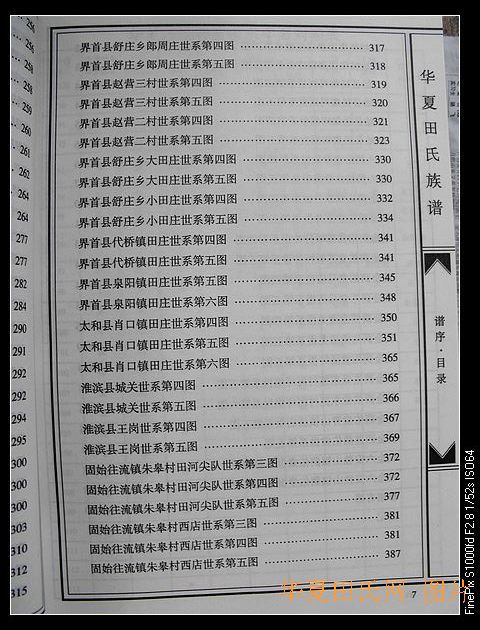 256
256
258
258
259
260
261
262
264
277
277
282
284
290
291
292
294
295
300
300
300
303
310
312
315
界首县舒庄乡郎周庄世系第四图 317
界首县舒庄乡郎周庄世系第五图 318
界首县赵营三村世系第四图 319
界首县赵营三村世系第五图 320
界首县赵营二村世系第四图 321
界首县赵营二村世系第五图 323
界首县舒庄乡大田庄世系第四图 330
界首县舒庄乡大田庄世系第五图 330
界首县舒庄乡小田庄世系第四图 332
界首县舒庄乡小田庄世系第五图 334
界首县代桥镇田庄世系第四图 341
界首县代桥镇田庄世系第五图 341
界首县泉阳镇田庄世系第五图 345
界首县泉阳镇田庄世系第六图 348
太和县肖口镇田庄世系第四图 350
太和县肖口镇田庄世系第五图 351
太和县肖口镇田庄世系第六图 365
淮滨县城关世系第四图 365
淮滨县城关世系第五图 366
淮滨县王岗世系第四图 367
淮滨县王岗世系第五图 369
固始往流镇朱皋村田河尖队世系第三图 372
固始往流镇朱皋村田河尖队世系第四图 372
固始往流镇朱皋村田河尖队世系第五图 377
固始往流镇朱皋村西店世系第三图 381
固始往流镇朱皋村西店世系第四图 381
固始往流镇朱皋村西店世系第五图 387
华夏田氏族谱
谱序·目录
7
华夏田氏网 图片
FinePix S1000fd F2.8 1/52s ISO64